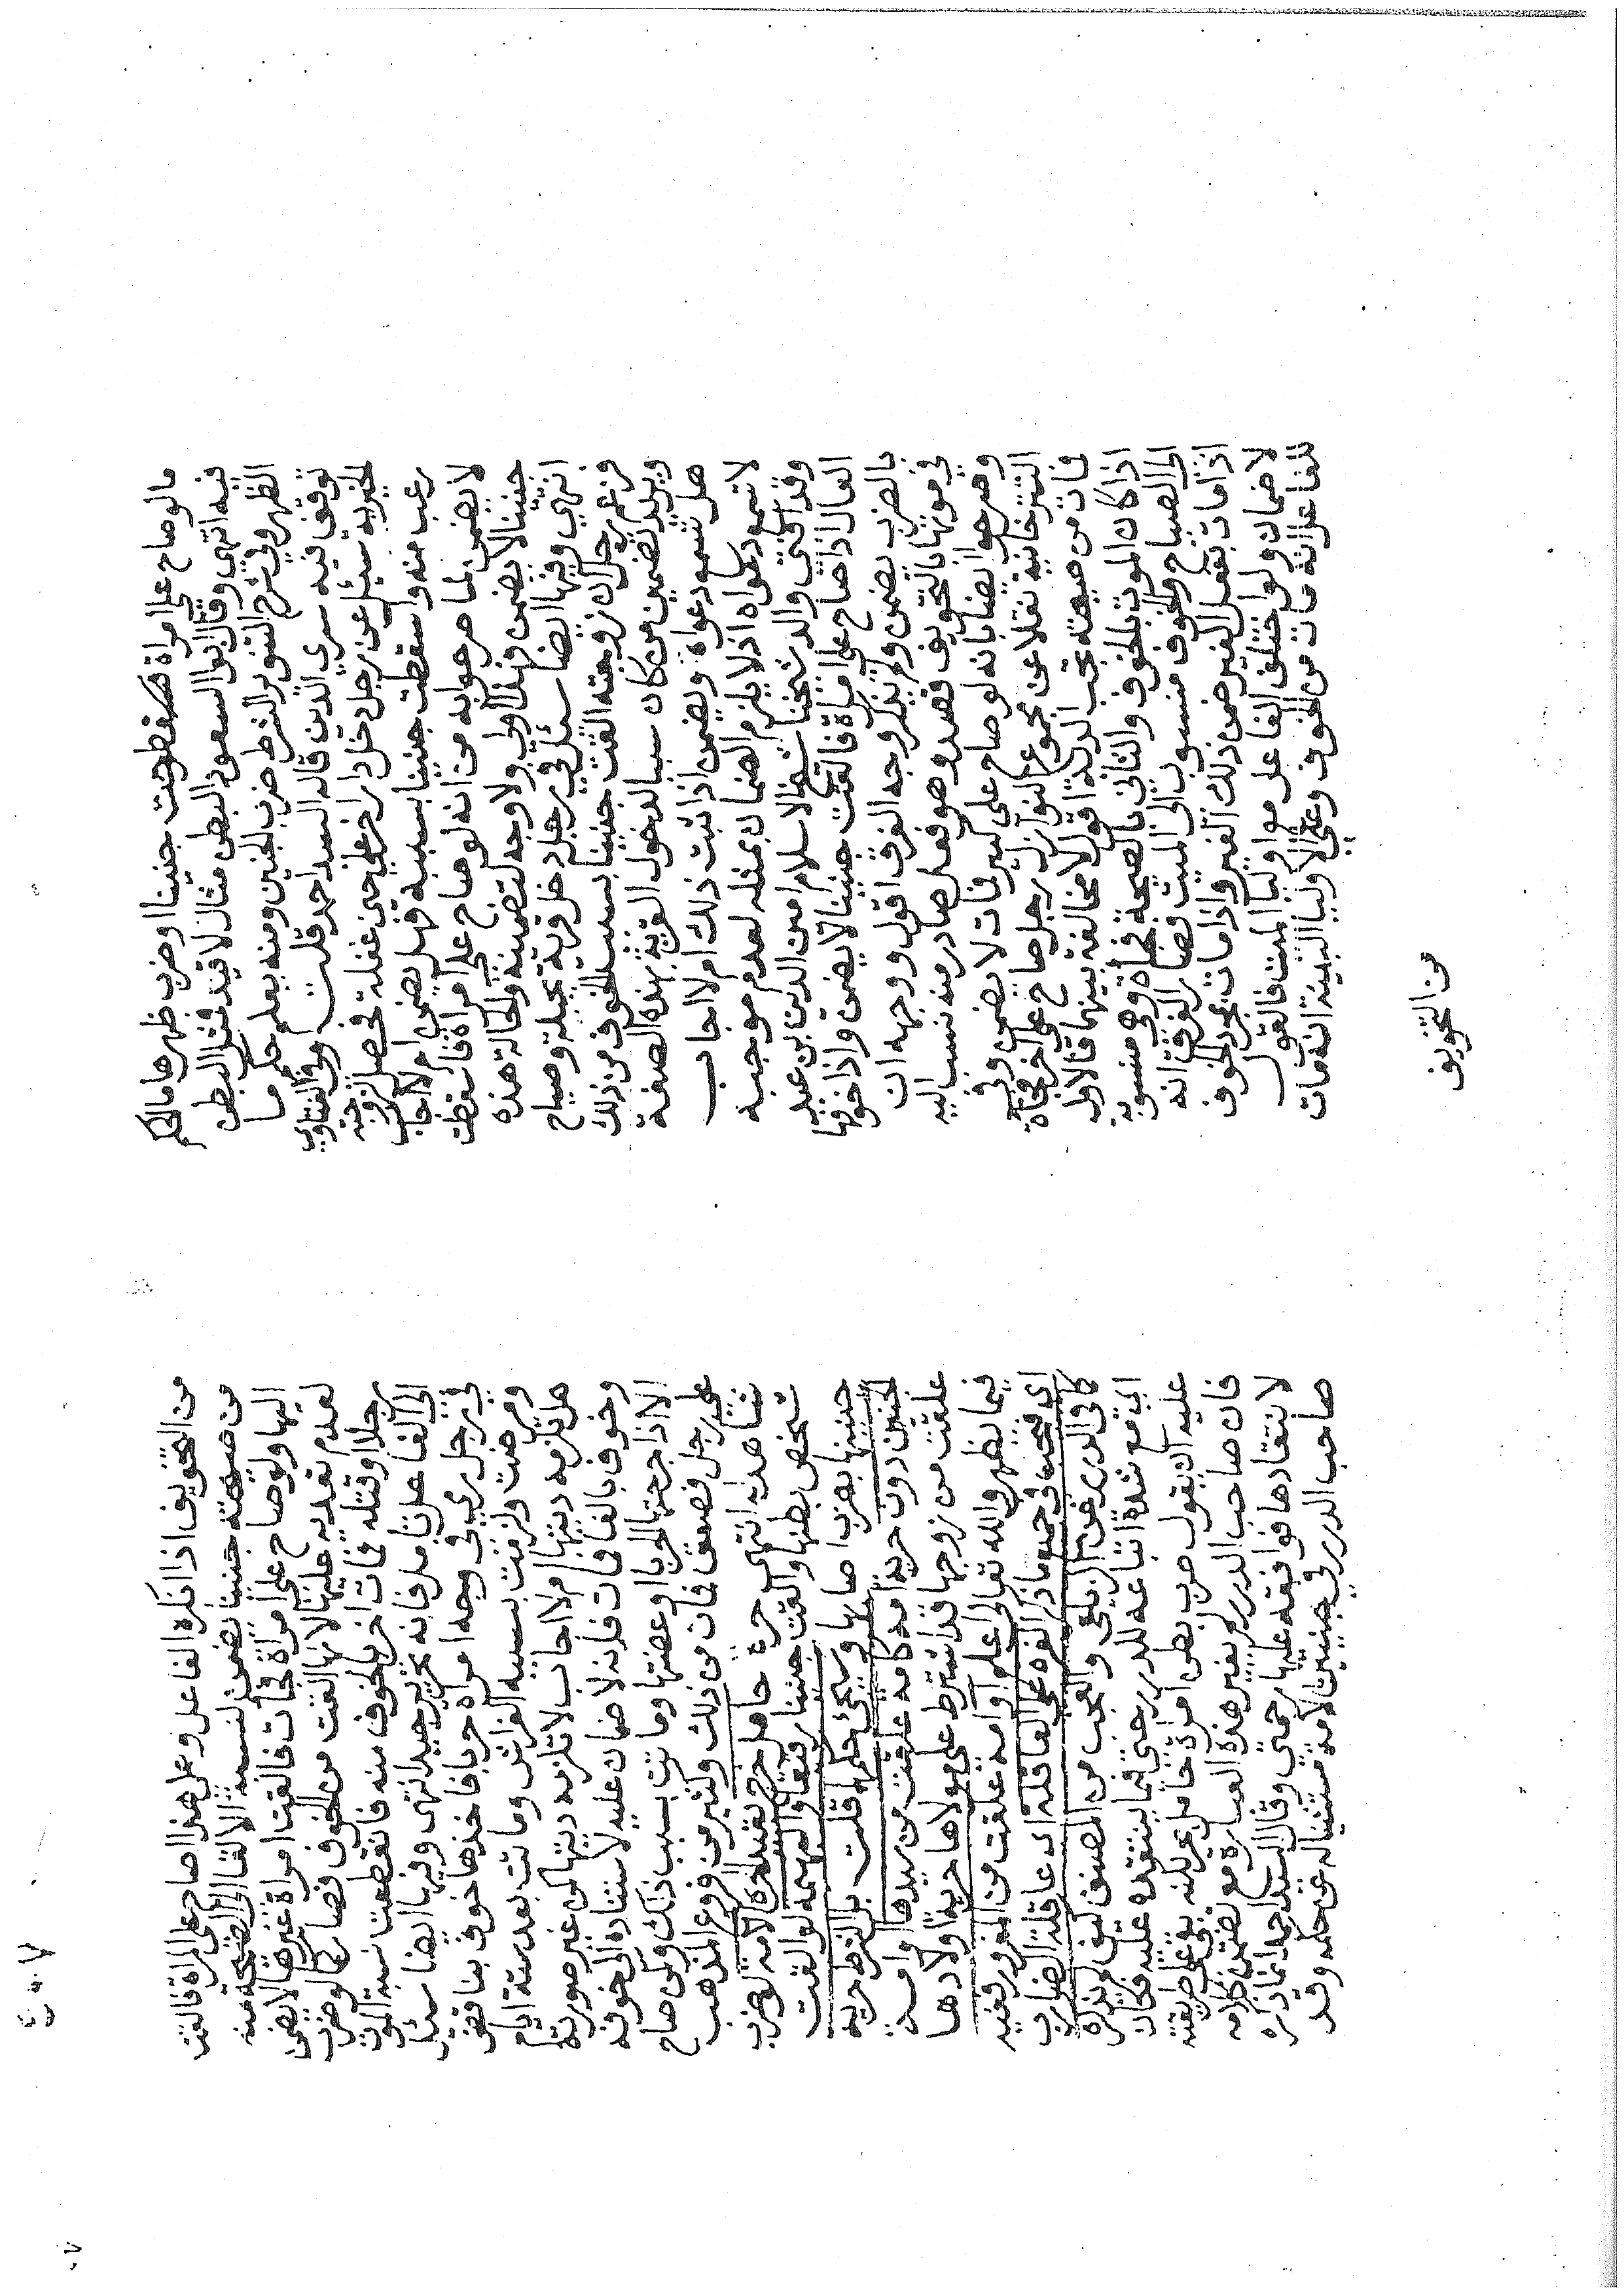 مالو صاح على امراة فسقطت جنينا او ضرب ظهرها مالحكم
فيه انتهى وقال ابوا السعود البطن مثال لا قيد فمثل البطن
الظهر وفي شرح التنوير الشرط ضرب الجنين ومنه يعلم حكم ما
توقف فيه سري الدين قاله السيد احمد قلت وفي الفتاوي
الخيرية سئل عن رجل دخل دار اخر على حين غفلة فحصل لزوجته
رعب منه واسقطت جنينا بسببه فهل يضمن ام لا اجاب
لا يضمن لما صرحوا به من انه لو صاح على امراة فاسقطت
جنينا لا يضمن فهذا اولى ولا وجه لتضمينه والحالة هذه
انتهى وفيها ايضا سئل في رجل دخل قرية بخيله وصياح
فزعم رجل ان زوجته القت جنينا بسبب الخوف من ذلك
ويريد تضمين من كان سببا لدخول القرية بهذه الصفة
هل تسمع دعواه ويضمن اذا ثبت ذلك ام لا اجاب
لا تسمع دعواه اذ لا يلزم الضمان بمثله لعدم موجبه
وقد افتى والد شيخنا شيخ الاسلام امين الدين بن عبد
العال اذا صاح على امراة فالقت جنينا لا يضمن واذا خوفها
بالضرب يضمن ولم يذكر وجه الفرق اقول ووجهه ان
في موتها بالتخويف قصد وهو فعل صادر منه نسب اليه
وصرحوا ايضا بانه لو صاح على كبير فمات لا يضمن وفي
التترخانية نقلا عن مجموع النوازل رجل صاح على اخر فجاة
فمات من صيحته تجب الدية اقول لا مخالفة بينهما فالاول
اذا كان الموت بالخوف والثاني بالصيحة فجاة وهي منسوبة
الى الصياح والخوف منسوب الى الميت فصار الفرق انه
اذا مات بفعل الغير ضمن ذلك الغير واذا مات بمجرد الخوف
لا ضمان ولو اختلف الفاعل مع اولياء الميت فالقول
للفاعل انه مات من الخوف وعلى الاولياء البينة انه مات
من التخويف
من التخويف اذا انكره الفاعل وعلى هذا صاح على المراة فالقت
من صيحته جنينا يضمن لنسبة الالقاء الى الصيحة منه
اليها ولو صاح على امراة فجات فالقت امراة غيرها لا يضمن
لعدم تعديه عليها لانها القت من الخوف فصار كما لو ضرب
رجلا او قتله فمات اخر بالخوف منه فانقطعت نسبة الموت
الى الفاعل تامل فانه تحرير جيد انتهى وفيها ايضا سئل
في رجل رمى في وجه امراة حربا فاخذها خوف بنا قض
ومرضت ولزمت بسببه الفراش وماتت بعد ستة ايام
هل يلزمه ديتها ام لا اجاب لا تلزمه ديتها كمن غير صورته
وخوف بالغا فمات فانه لا ضمان عليه لاستناده الى خوفه
الا اذا جرحتها الحربا او عضتها وماتت بسبب ذلك وكمن صاح
على رجل فصعق فمات من ذلك وكثير من فروع المذهب
شاهد له انتهى حرة حامل
شخص بطنها والقت جنينا رقيقا
جنينها بضرب اصابها ويجي حكمها قلت بل الشرط حرية
الجنين دون حرية امه كامة علقت من سيدها او امة
علقت من زوجها قد اشترط على مولاها حرية اولادها
فيما يظهر والله تعالى اعلم او امة علقت من المغرور ففيه
اي فيجب في جميع ما ذكر الغرة على العاقلة اي عاقلة الضارب
كما في الدرر عن الزيلعي والعجب من المصنف كيف لم يذكره
اي مع شدة اتباعه للدرر حتى فيما ينتقده عليه فكان
عليه ان يقول ضرب بطن امراة حامل تجريا منه على طريقته
فان صاحب الدرر لم يغير هذه العبارة مع تضمن كلامه
لانتقادها فوافقه عليها رحمتي وقال السيد احمد انما ذكره
صاحب الدرر في جنين الامة مستثنيا له عن حكمه وقد